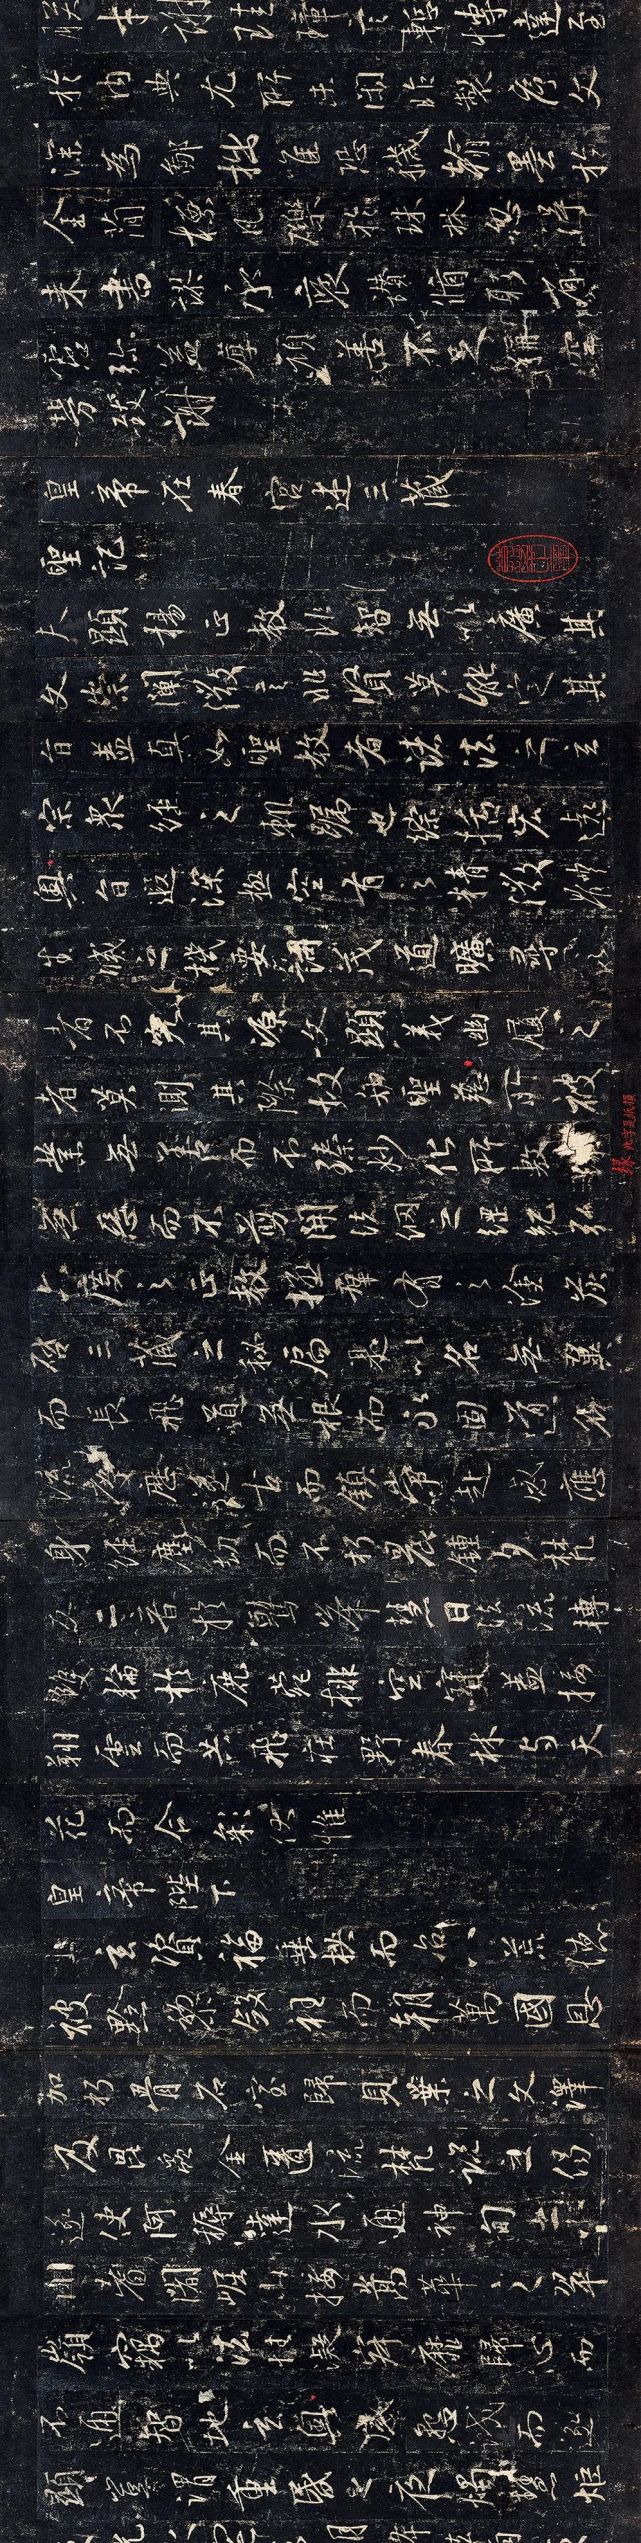 朕才謝珪璋言慚博達至
於內典尤所未閑昨製序文
深為鄙拙唯恐穢翰墨於
金簡標瓦礫於珠林忽得
來書謬承褒讚循躬省
慮彌益厚顏善不足稱空
勞致謝
皇帝在春宮述三藏
聖記
夫顯揚正教非智無以廣其
文崇闡微言非賢莫能定其
旨蓋真如聖教者諸法之玄
宗眾經之軌躅也綜括宏遠
奧旨遐深極空有之精微體
生滅之機要詞茂道曠尋之
者不究其源文顯義幽履之
者莫測其際故知聖慈所被
業無善而不臻妙化所敷
緣此字是紙損
無惡而不翦開法網之綱紀弘
六度之正教拯群有之塗炭
啟三藏之秘扃是以名無翼
而長飛道無根而永固道名
流慶歷遂古而鎮常赴感應
身經塵劫而不朽晨鐘夕梵
交二音於鷲峰慧日法流轉
雙輪於鹿菀排空寶蓋接
翔雲而共飛莊野春林與天
花而合彩伏惟
皇帝陛下
上玄資福垂拱而治八荒德
被黔黎斂衽而朝萬國恩
加朽骨石室歸貝葉之文澤
及昆蟲金匱流梵說之偈
遂使阿耨達水通神甸之八
川耆闍崛山接嵩華之翠
嶺竊以法性凝寂靡歸心而
不通智地玄奧感懇誠而遂
顯豈謂重昏之夜燭慧炬